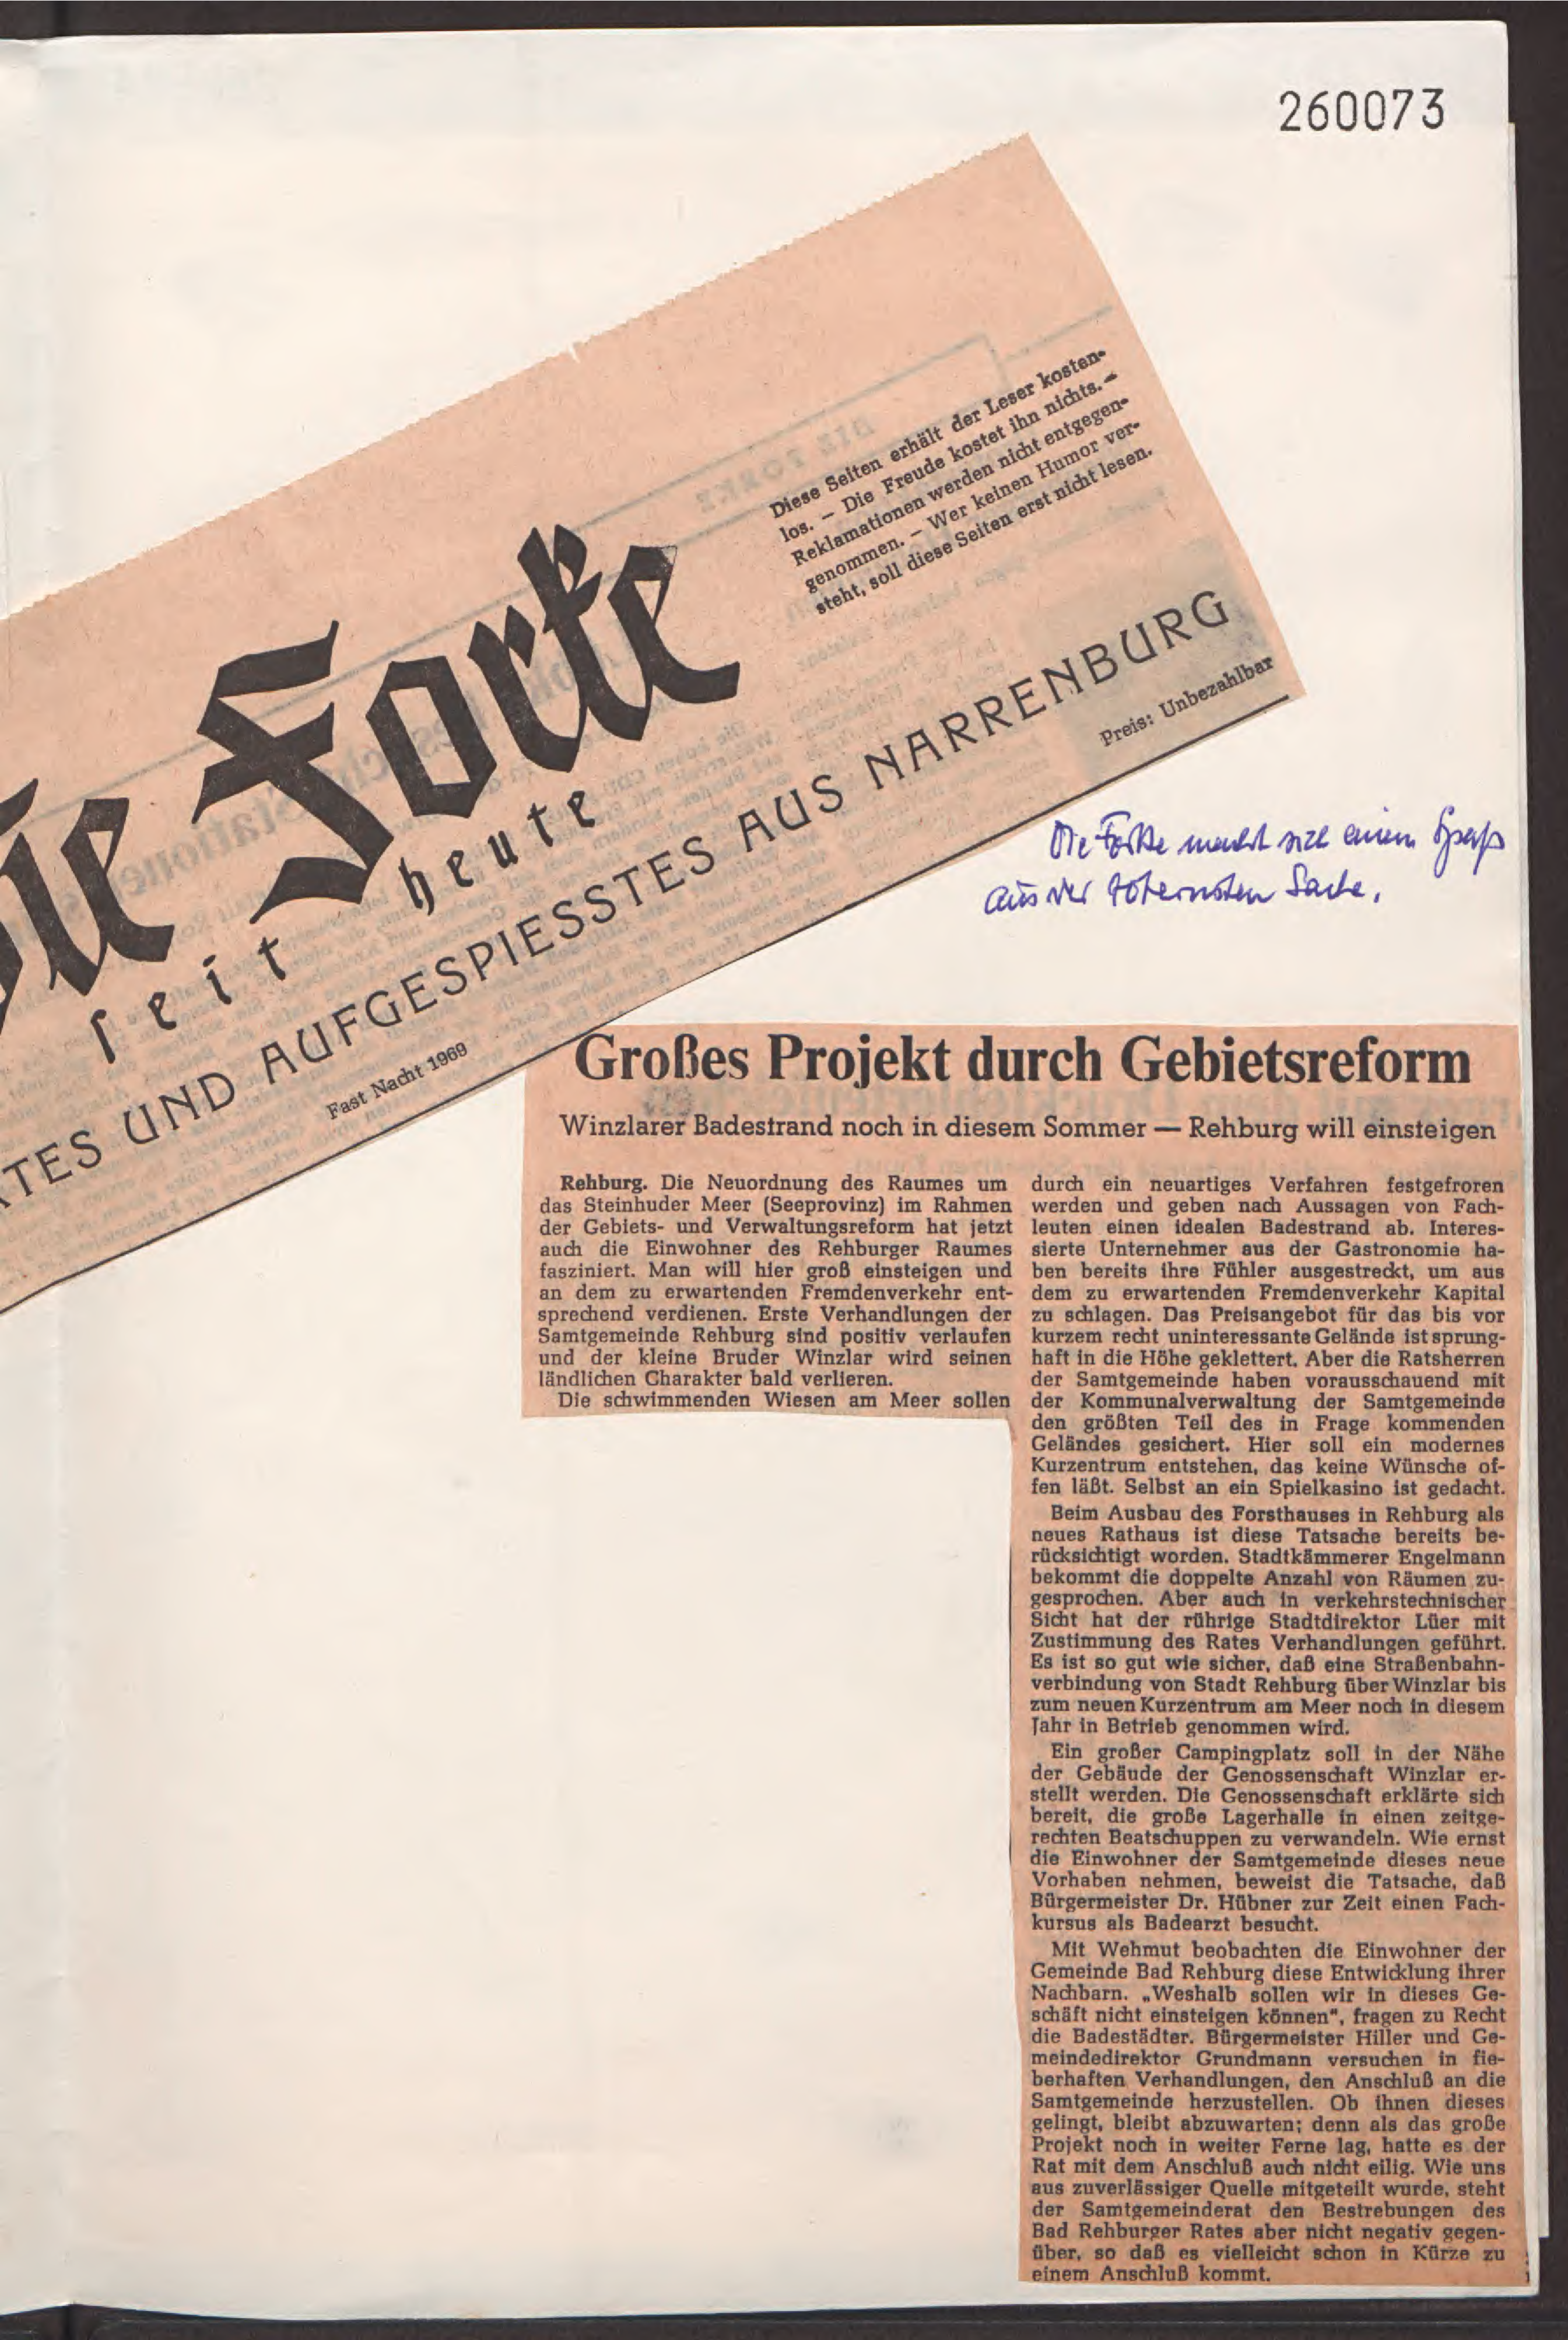 260073
Diese Seiten erhält der Leser kosten-
los. — Die Freude kostet ihn nichts. —
Reklamationen werden nicht entgegen-
genommen. — Wer keinen Humor ver-
steht, soll diese Seiten erst nicht lesen.
Die Forke
seit heute
ATES UND AUFGESPIESSTES AUS NARRENBURG
Fast Nacht 1969
Preis: Unbezahlbar
Die Forke macht sich einen Spaß
aus der toternsten Sache.
Großes Projekt durch Gebietsreform
Winzlarer Badestrand noch in diesem Sommer — Rehburg will einsteigen
Rehburg. Die Neuordnung des Raumes um
das Steinhuder Meer (Seeprovinz) im Rahmen
der Gebiets- und Verwaltungsreform hat jetzt
auch die Einwohner des Rehburger Raumes
fasziniert. Man will hier groß einsteigen und
an dem zu erwartenden Fremdenverkehr ent-
sprechend verdienen. Erste Verhandlungen der
Samtgemeinde Rehburg sind positiv verlaufen
und der kleine Bruder Winzlar wird seinen
ländlichen Charakter bald verlieren.
Die schwimmenden Wiesen am Meer sollen
durch ein neuartiges Verfahren festgefroren
werden und geben nach Aussagen von Fach-
leuten einen idealen Badestrand ab. Interes-
sierte Unternehmer aus der Gastronomie ha-
ben bereits ihre Fühler ausgestreckt, um aus
dem zu erwartenden Fremdenverkehr Kapital
zu schlagen. Das Preisangebot für das bis vor
kurzem recht uninteressante Gelände ist sprung-
haft in die Höhe geklettert. Aber die Ratsherren
der Samtgemeinde haben vorausschauend mit
der Kommunalverwaltung der Samtgemeinde
den größten Teil des in Frage kommenden
Geländes gesichert. Hier soll ein modernes
Kurzentrum entstehen, das keine Wünsche of-
fen läßt. Selbst an ein Spielkasino ist gedacht.
Beim Ausbau des Forsthauses in Rehburg als
neues Rathaus ist diese Tatsache bereits be-
rücksichtigt worden. Stadtkämmerer Engelmann
bekommt die doppelte Anzahl von Räumen zu-
gesprochen. Aber auch in verkehrstechnischer
Sicht hat der rührige Stadtdirektor Lüer mit
Zustimmung des Rates Verhandlungen geführt.
Es ist so gut wie sicher, daß eine Straßenbahn-
verbindung von Stadt Rehburg über Winzlar bis
zum neuen Kurzentrum am Meer noch in diesem
Jahr in Betrieb genommen wird.
Ein großer Campingplatz soll in der Nähe
der Gebäude der Genossenschaft Winzlar er-
stellt werden. Die Genossenschaft erklärte sich
bereit, die große Lagerhalle in einen zeitge-
rechten Beatschuppen zu verwandeln. Wie ernst
die Einwohner der Samtgemeinde dieses neue
Vorhaben nehmen, beweist die Tatsache, daß
Bürgermeister Dr. Hübner zur Zeit einen Fach-
kursus als Badearzt besucht.
Mit Wehmut beobachten die Einwohner der
Gemeinde Bad Rehburg diese Entwicklung ihrer
Nachbarn. „Weshalb sollen wir in dieses Ge-
schäft nicht einsteigen können", fragen zu Recht
die Badestädter. Bürgermeister Hiller und Ge-
meindedirektor Grundmann versuchen in fie-
berhaften Verhandlungen, den Anschluß an die
Samtgemeinde herzustellen. Ob ihnen dieses
gelingt, bleibt abzuwarten; denn als das große
Projekt noch in weiter Ferne lag, hatte es der
Rat mit dem Anschluß auch nicht eilig. Wie uns
aus zuverlässiger Quelle mitgeteilt wurde, steht
der Samtgemeinderat den Bestrebungen des
Bad Rehburger Rates aber nicht negativ gegen-
über, so daß es vielleicht schon in Kürze zu
einem Anschluß kommt.